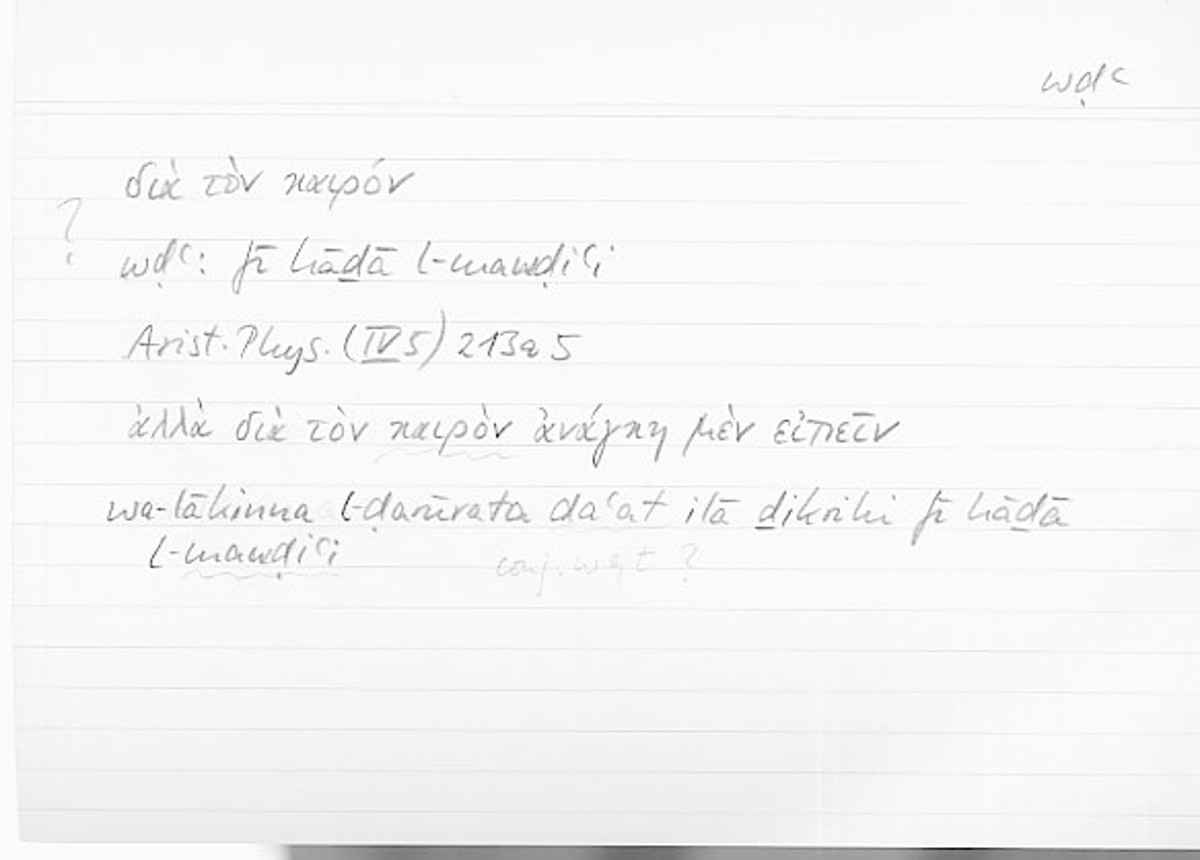 wḍʿ
διὰ τὸν καιρόν
?
wḍʿ: fī hāḏā l-mawḍiʿi
Arist. Phys. (IV 5) 213a5
ἀλλὰ διὰ τὸν καιρὸν ἀνάγκη μὲν εἰπεῖν
wa-lākinna l-ḍarūrata daʿat ilā ḏikrihi fī hāḏā
l-mawḍiʿi
conj. wqt ?